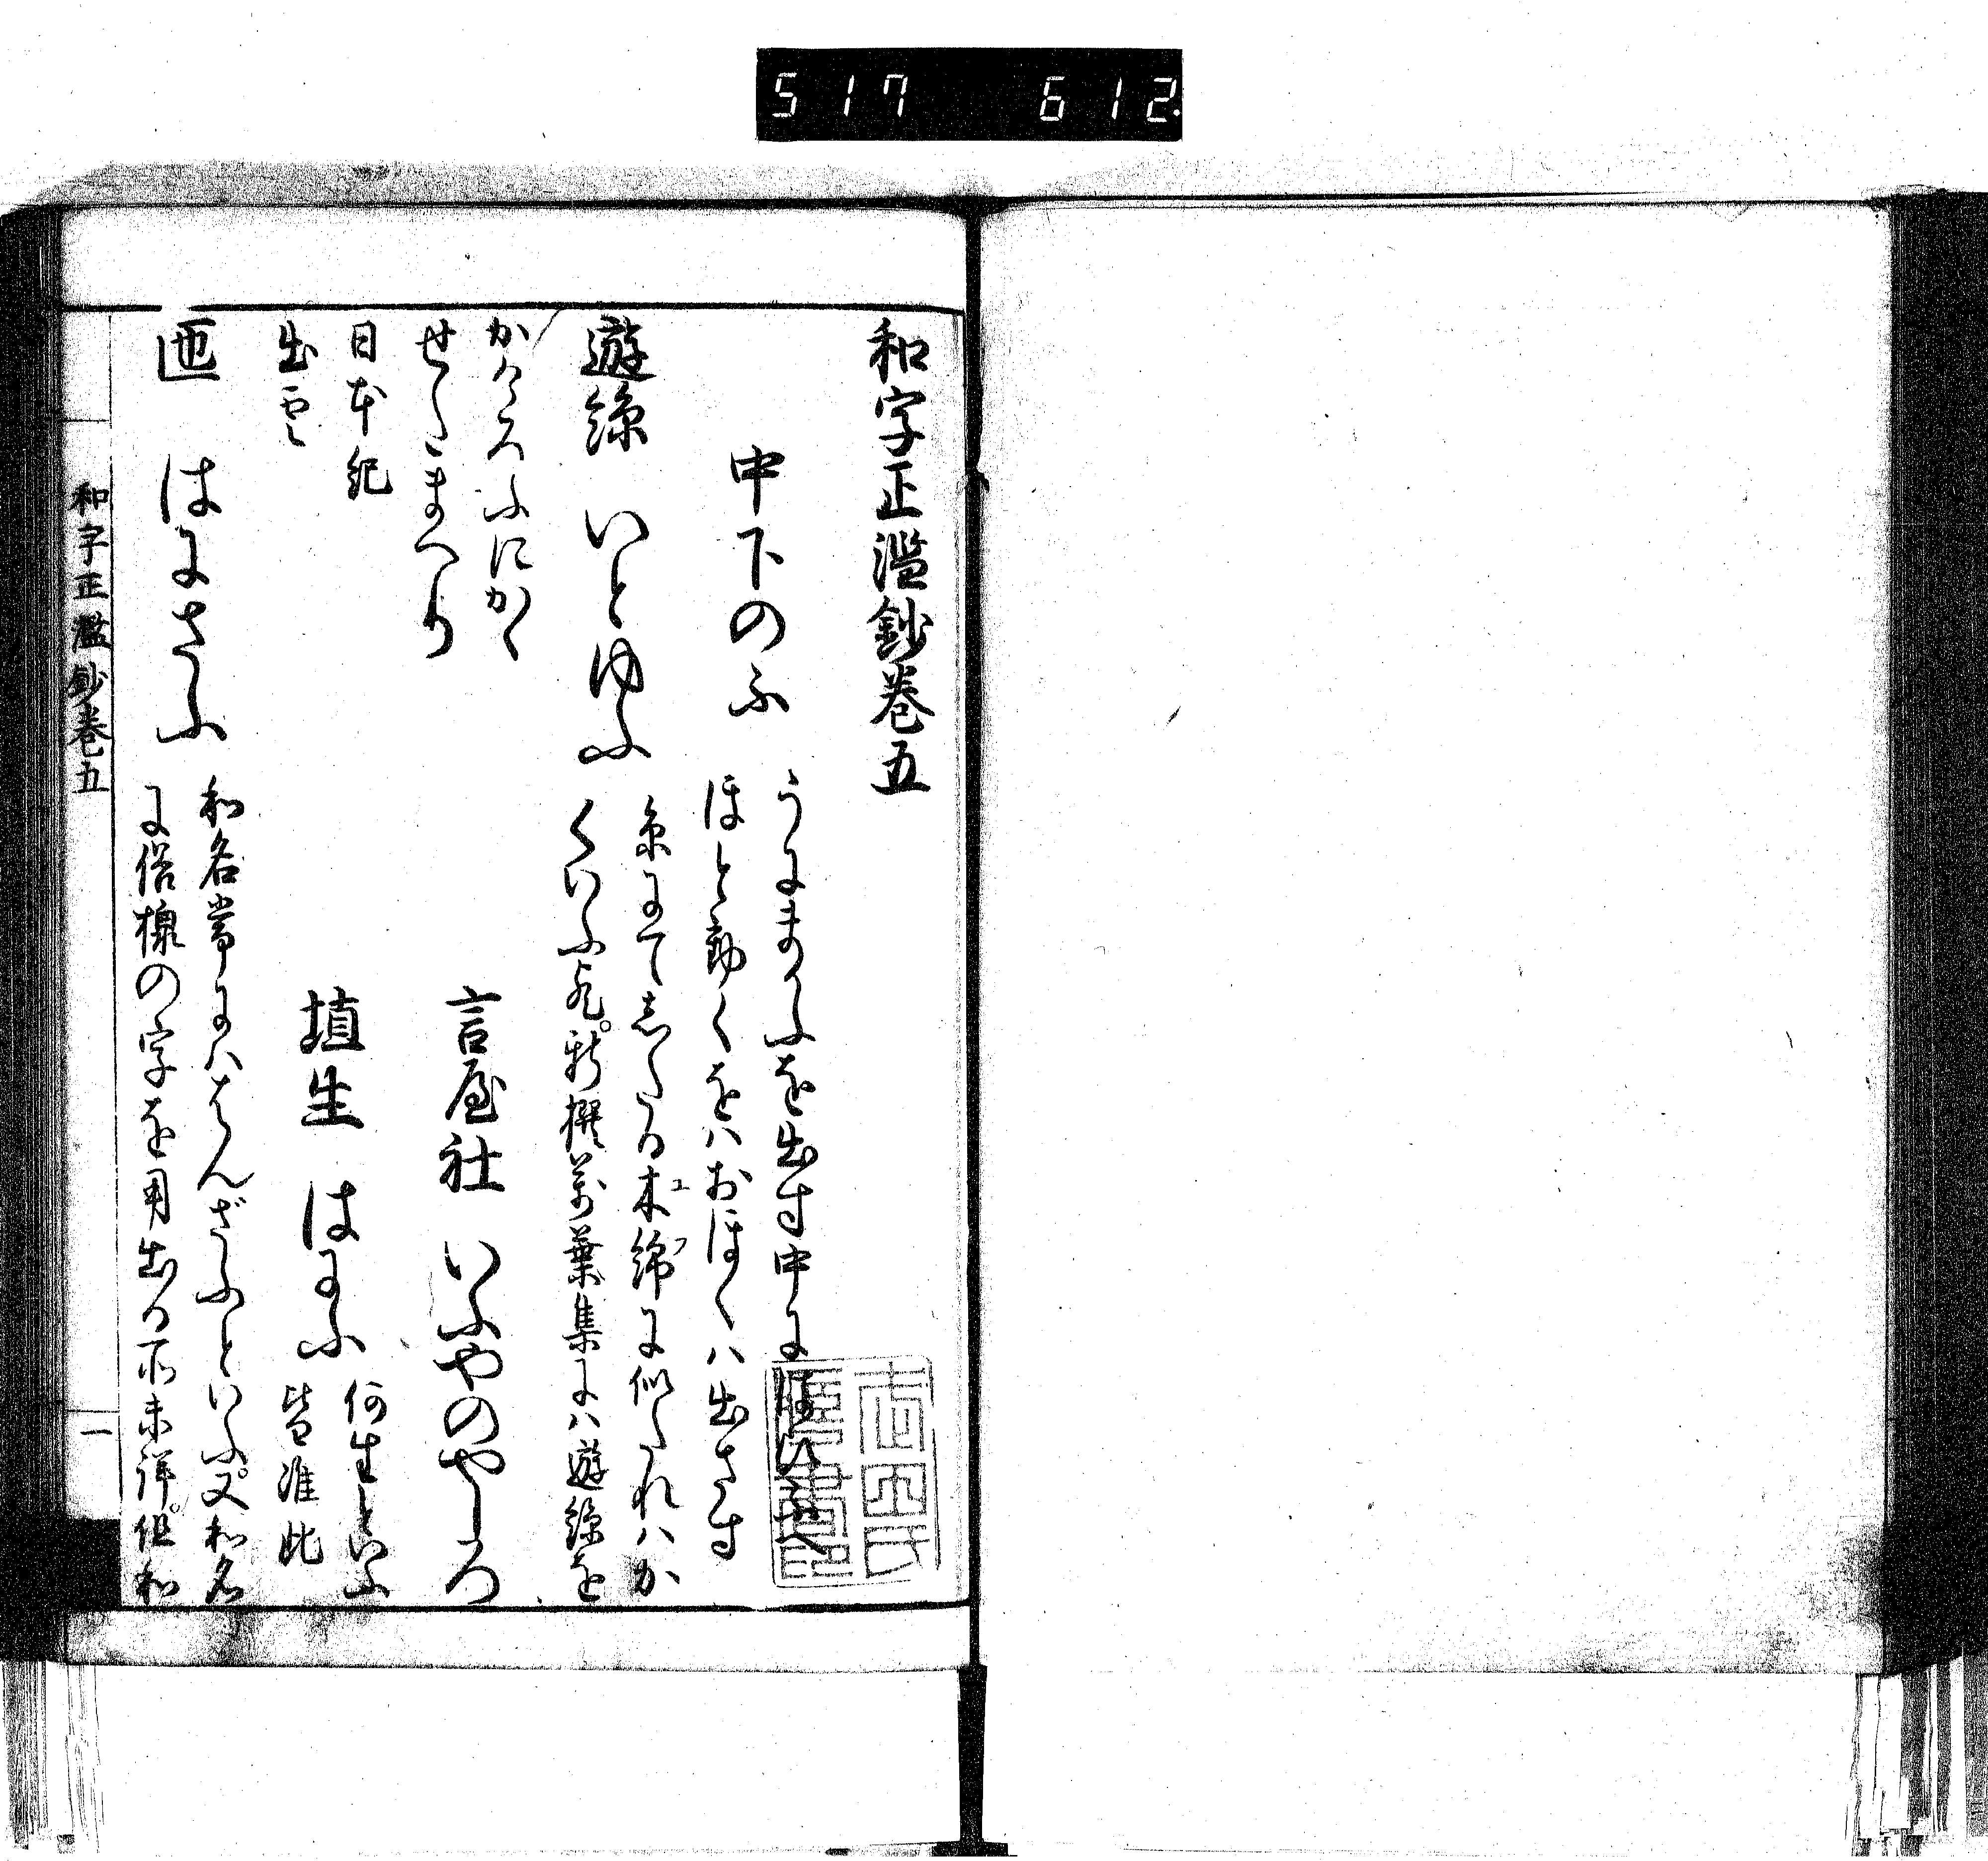 517 612
和字正濫鈔卷五
中下のふ
うにまかふを出す中に
ほと動くをハおほくハ出さす
遊絲 いとゆふ
糸にて志たる木綿に似たれハか
ユフ
くいふ歟。新撰萬葉集にハ遊絲を
かけろふにかく
せたまへり
言屋社 いふやのやしろ
日本紀
出雲
埴生 はにふ
何生といふ
皆准此
匜 はにさふ
和名常にハはんざふといふ。又和名
に俗樣の字を用出る所未詳。但和
和字正濫鈔卷五
一